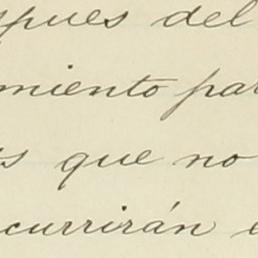 spues del
miento par
s que no
currirán e